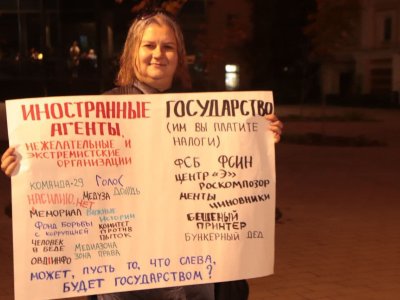 ИНОСТРАННЫЕ
АГЕНТЫ,
НЕЖЕЛАТЕЛЬНЫЕ И
ЭКСТРЕМИСТСКИЕ
ОРГАНИЗАЦИИ
КОМАНДА-29 ГОЛОС
НАСИЛИЮ.НЕТ МЕДУЗА ДОЖДЬ
МЕМОРИАЛ ВАЖНЫЕ ИСТОРИИ
ФОНД БОРЬБЫ С КОРРУПЦИЕЙ КОМИТЕТ ПРОТИВ ПЫТОК
ЧЕЛОВЕК В БЕДЕ МЕДИАЗОНА
ОВД ИНФО ЗОНА ПРАВА
ГОСУДАРСТВО
(ИМ ВЫ ПЛАТИТЕ
НАЛОГИ)
ФСБ ФСИН
ЦЕНТР «Э»
РОСКОМПОЗОР
МЕНТЫ
ЧИНОВНИКИ
БЕШЕНЫЙ
ПРИНТЕР
БУНКЕРНЫЙ ДЕД
МОЖЕТ, ПУСТЬ ТО, ЧТО СЛЕВА,
БУДЕТ ГОСУДАРСТВОМ?